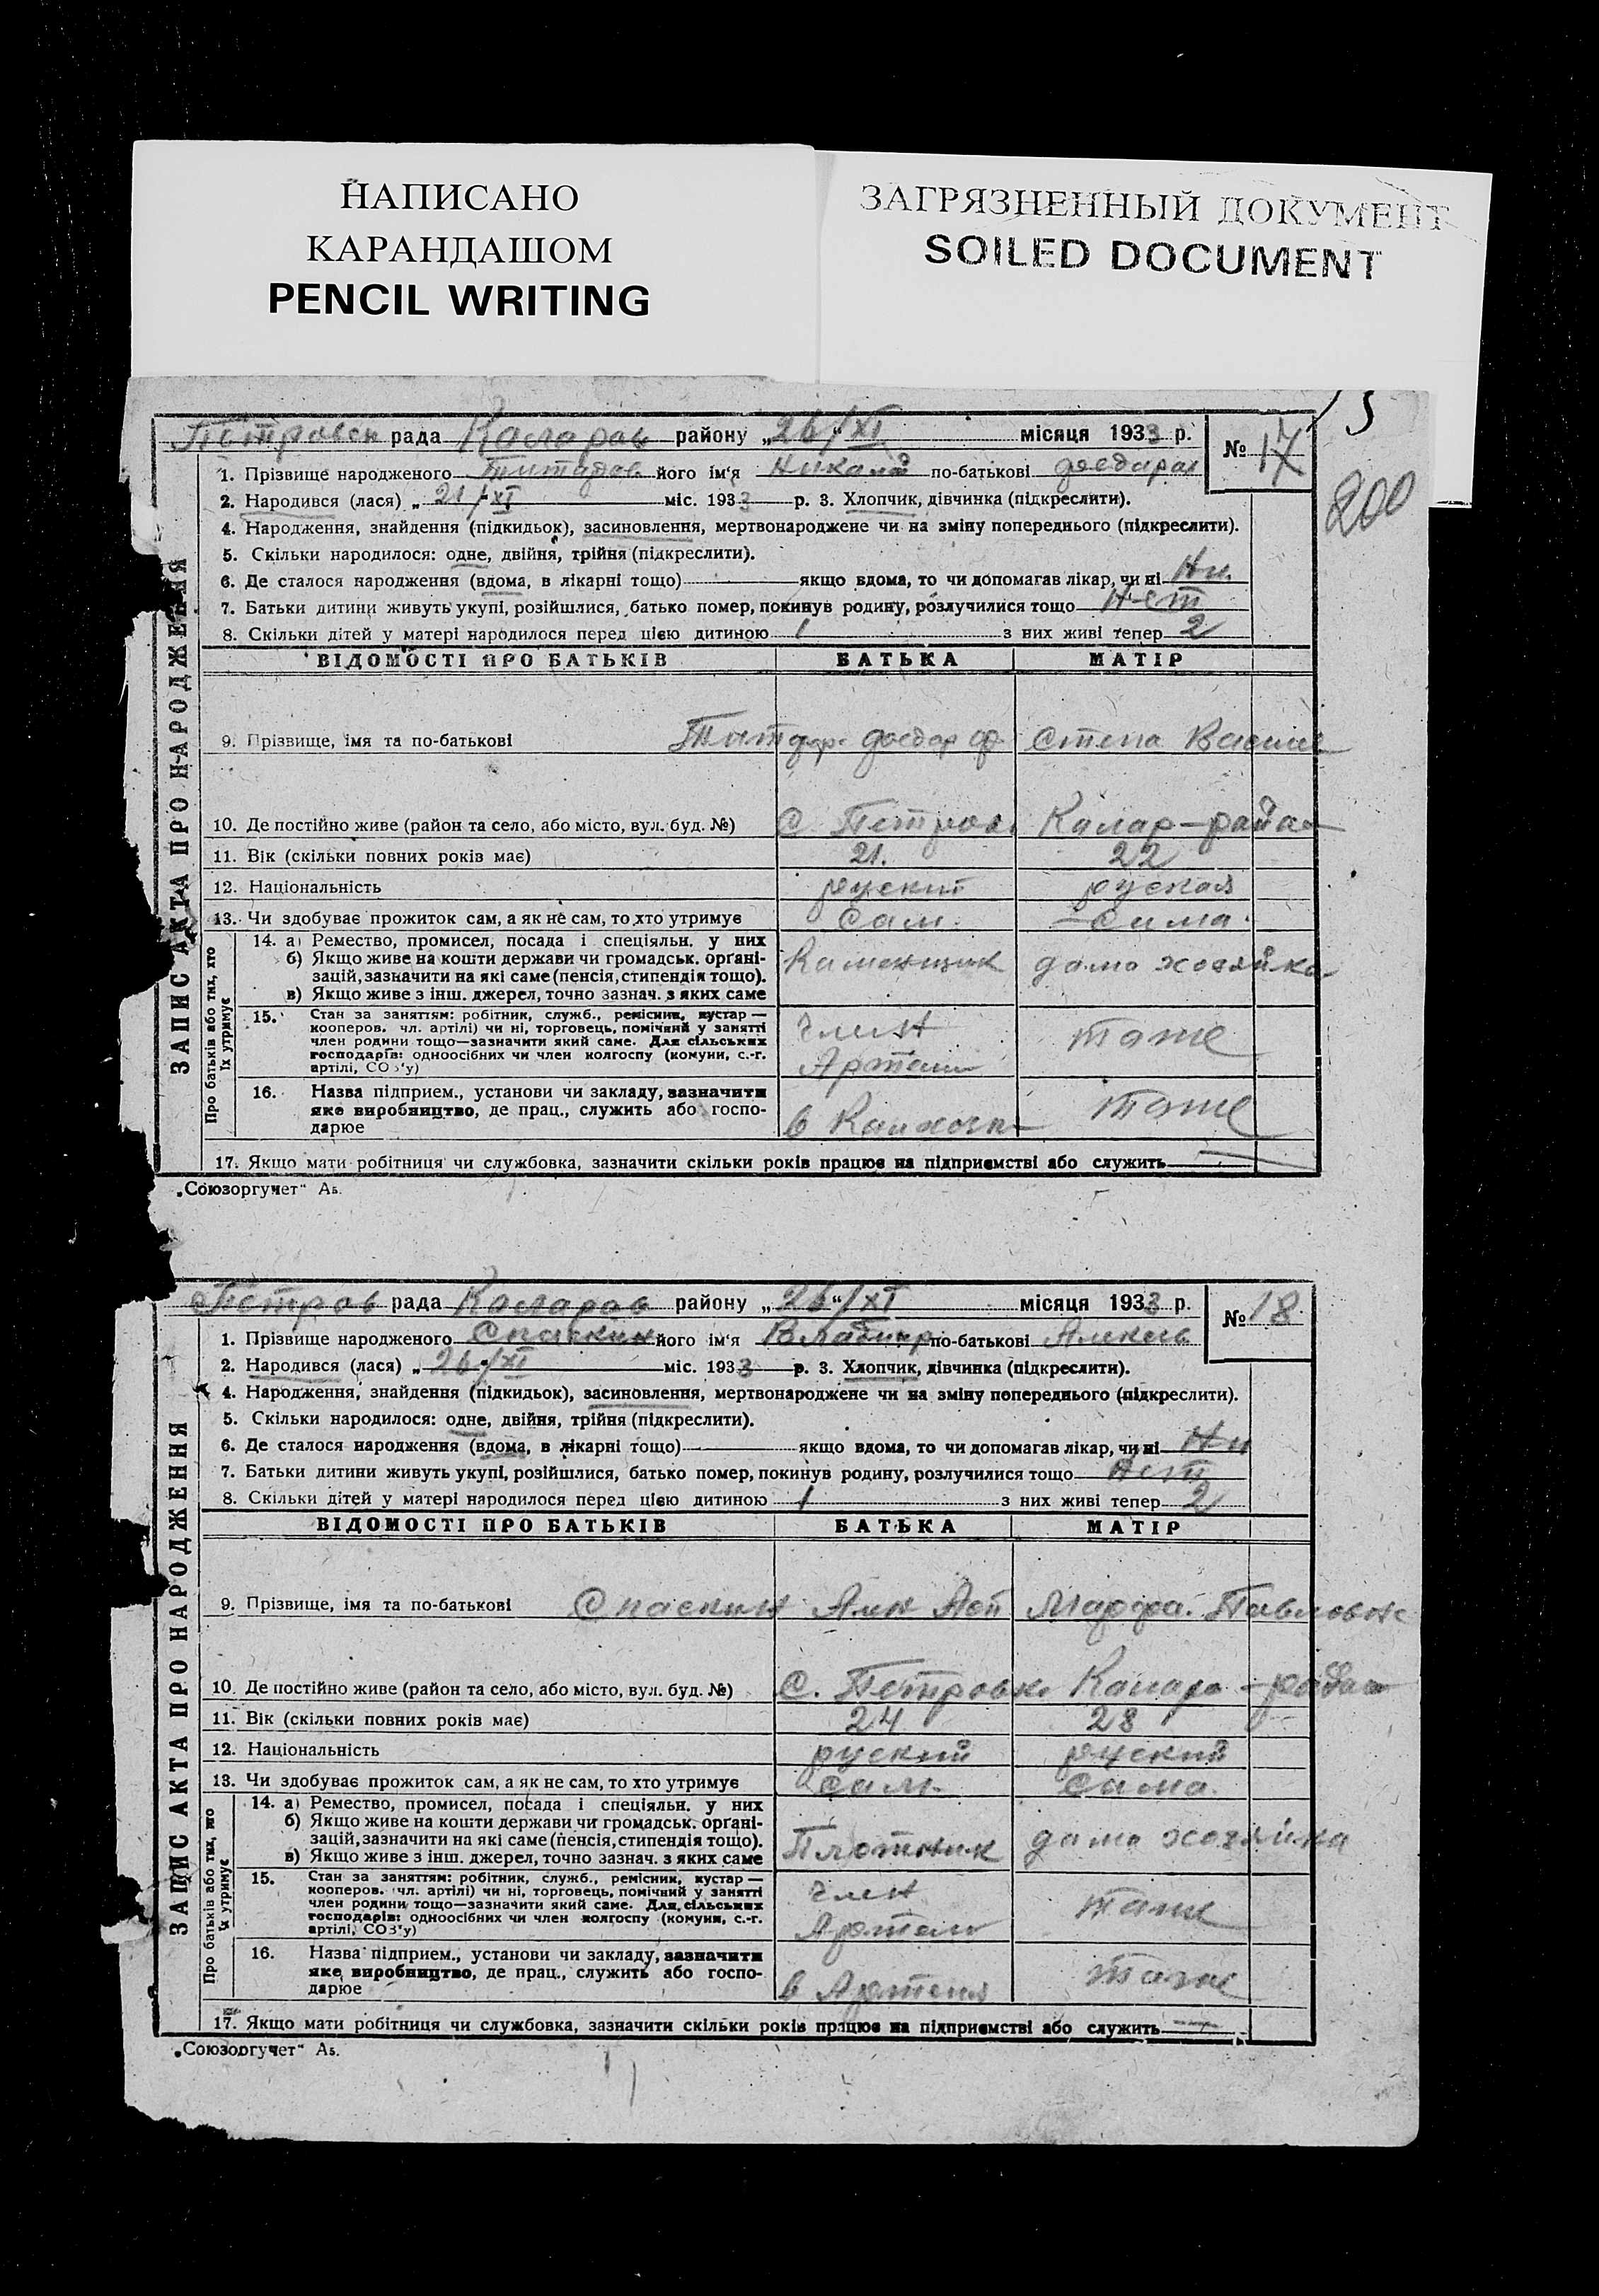 НАПИСАНО
КАРАНДАШОМ
PENCIL WRITING
ЗАГРЯЗНЕННЫЙ ДОКУМЕНТ
SOILED DOCUMENT
200
Петровск рада Каларов району „26“/XI місяця 1933 р. № 17
1. Прізвище народженого його ім'я по-батькові
2. Народився (лася) „ 21/XI міс. 1933 р. 3. Хлопчик, дівчинка (підкреслити).
4. Народження, знайдення (підкидьок), засиновлення, мертвонароджене чи на зміну попереднього (підкреслити).
5. Скільки народилося: одне, двійня, трійня (підкреслити).
6. Де сталося народження (вдома, в лікарні тощо) якщо вдома, то чи допомагав лікар, чи ні Ни.
7. Батьки дитини живуть укупі, розійшлися, батько помер, покинув родину, розлучилися тощо Нет
8. Скільки дітей у матері народилося перед цією дитиною 1 з них живі тепер 2
ЗАПИС АКТА ПРО НАРОДЖЕННЯ
ВІДОМОСТІ ПРО БАТЬКІВ БАТЬКА МАТІР
9. Прізвище, імя та по-батькові
10. Де постійно живе (район та село, або місто, вул. буд. №) С Петровк Калар-район
11. Вік (скільки повних років має) 21. 22
12. Національність руский руская
13. Чи здобуває прожиток сам, а як не сам, то хто утримує Сам. Сама.
Про батьків або тих, хто їх утримує
14. а) Ремество, промисел, посада і спеціяльн. у них
б) Якщо живе на кошти держави чи громадськ. орґані-
зацій, зазначити на які саме (пенсія, стипендія тощо).
в) Якщо живе з інш. джерел, точно зазнач. з яких саме
Каменщик дамо хозяйка
15. Стан за заняттям: робітник, служб., ремісник, кустар —
кооперов. чл. артілі) чи ні, торговець, помічний у занятті
член родини тощо—зазначити який саме. Для сільських
господарів: одноосібних чи член колгоспу (комуни, с.-г.
артілі, СОЗ'у)
член Артели таже
16. Назва підприєм., установи чи закладу, зазначити
яке виробництво, де прац., служить або госпо-
дарюе
в таже
17. Якщо мати робітниця чи службовка, зазначити скільки років працює на підприємстві або служить
„Союзоргучет“ А5.
Петров рада Каларов району „26“/XI місяця 1933 р. № 18
1. Прізвище народженого Спаскин його ім'я Владимир по-батькові Алексев
2. Народився (лася) „ 26/XI міс. 1933 р. 3. Хлопчик, дівчинка (підкреслити).
4. Народження, знайдення (підкидьок), засиновлення, мертвонароджене чи на зміну попереднього (підкреслити).
5. Скільки народилося: одне, двійня, трійня (підкреслити).
6. Де сталося народження (вдома, в лікарні тощо) якщо вдома, то чи допомагав лікар, чи ні Ни
7. Батьки дитини живуть укупі, розійшлися, батько помер, покинув родину, розлучилися тощо Нет
8. Скільки дітей у матері народилося перед цією дитиною 1 з них живі тепер 2
ЗАПИС АКТА ПРО НАРОДЖЕННЯ
ВІДОМОСТІ ПРО БАТЬКІВ БАТЬКА МАТІР
9. Прізвище, імя та по-батькові Спаскин Марфа. Павловна
10. Де постійно живе (район та село, або місто, вул. буд. №) С. Петровка
11. Вік (скільки повних років має) 24 23
12. Національність руский руский
13. Чи здобуває прожиток сам, а як не сам, то хто утримує сам. Сама.
Про батьків або тих, хто їх утримує
14. а) Ремество, промисел, посада і спеціяльн. у них
б) Якщо живе на кошти держави чи громадськ. орґані-
зацій, зазначити на які саме (пенсія, стипендія тощо).
в) Якщо живе з інш. джерел, точно зазнач. з яких саме
Плотник дамо хозяйка
15. Стан за заняттям: робітник, служб., ремісник, кустар —
кооперов. чл. артілі) чи ні, торговець, помічний у занятті
член родини тощо—зазначити який саме. Для сільських
господарів: одноосібних чи член колгоспу (комуни, с.-г.
артілі, СОЗ'у)
член Артели таже
16. Назва підприєм., установи чи закладу, зазначити
яке виробництво, де прац., служить або госпо-
дарюе
в Артели таже
17. Якщо мати робітниця чи службовка, зазначити скільки років працює на підприємстві або служить
„Союзоргучет“ А5.